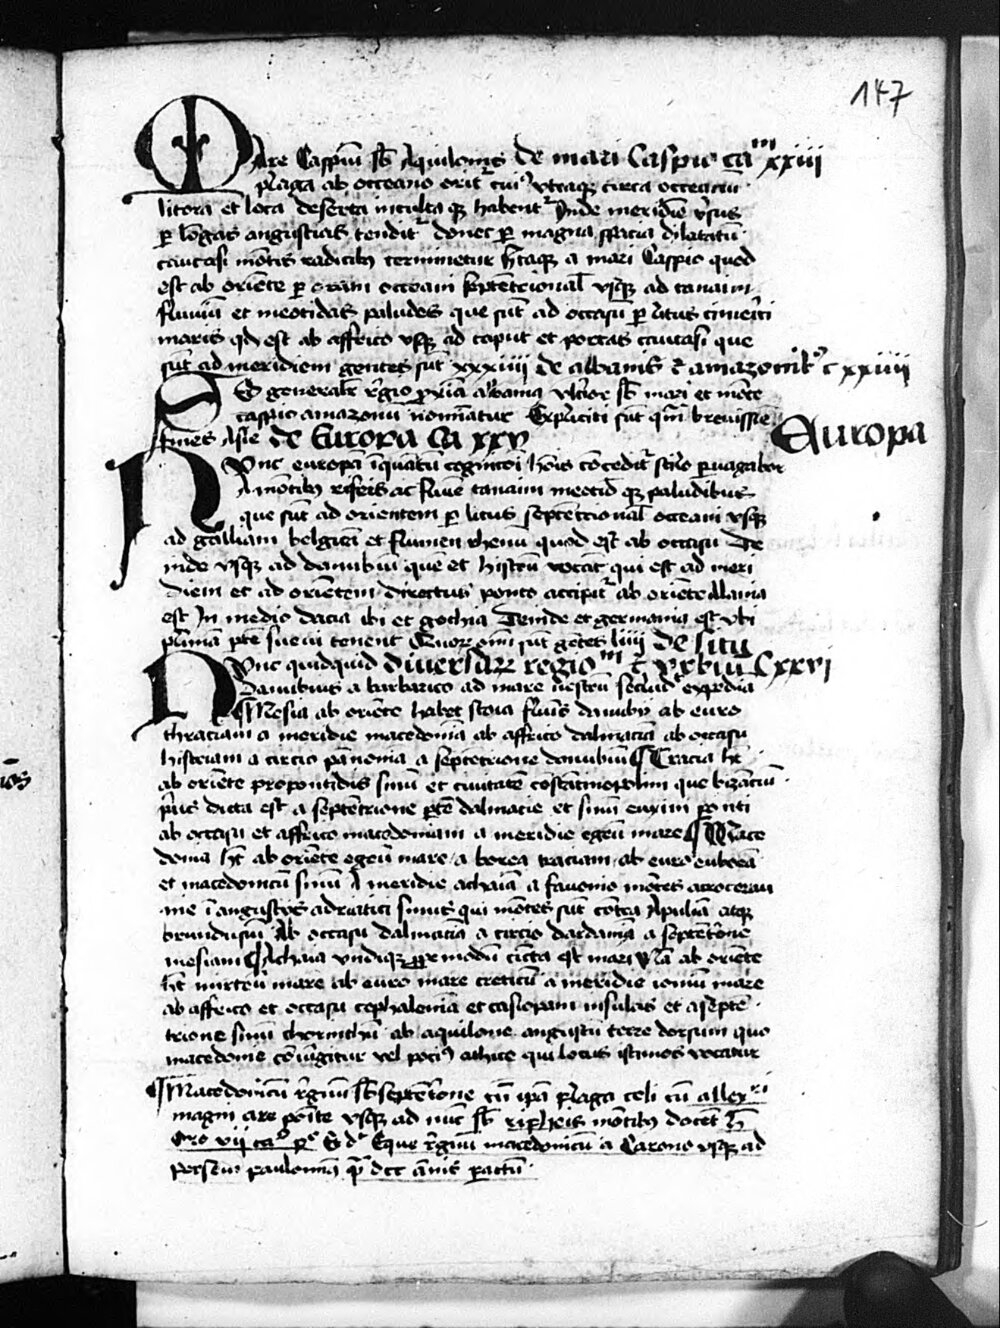 147
Mare Caspiū sb̄ Aquilonis de mari Caspio ca^m xxiii
plaga ab occeano orit^r cui^9 vtraq̄ circa occeanū
litora et loca deserta inculta q̄ habent^r Inde meridiē v̄sus
p̱ lōgas angustias tendit^r donec p̱ magna spacia dilatatū
caucasi mōtis radicib₉ terminetur Itaq̄ a mari Caspio quod
est ab oriēte p̱ oram occeani septētrional̄ vsq̄ ad tanaim
fluuiū et meotidas paludes que sūt ad occasū p̱ litus cimerici
maris qd̄ est ab affrico vsq̄ ad caput et portas caucasi que
sūt ad meridiem gentes sūt xxxiiii de albanis et amazonib₉ c xxiiii
Sed generalr̄ regio p̄xīa albania vlterior sb̄ mari et mōte
caspio amazonū nominatur Expliciti sūt qm̄ breuissīe
fines Asie de Europa Ca xxv
Europa
Nunc europā īquātū cognicōi hoīs cōcedit^r stilo peruagabor
A mōtib₉ rifeis ac flumīe tanaim meotid q̄ paludibus
que sūt ad orientem p̱ litus septētrional̄ occeani vsq̄
ad galliam belgicā et flumen rhenū quod est ab occasu De
inde vsq̄ ad danubiū quē et histrū vocāt qui est ad meri
diem et ad oriētem directus ponto accipit^r ab oriēte Alania
est In medio dacia ibi et gothia Deinde et germania est vbi
plurimā p̱tē sueui tenent Quor̄ om̄i sūt gētes liiii de situ
Nunc quidquid diuersar̄ regio^m et vrbiū C xxvi
danubius a barbarico ad mare nr̄ostrū secludit expediā
¶ Mesia ab oriēte habet ostia fluuii danubij ab euro
thraciam a meridie macedoniā ab affrico dalmaciā ab occasu
histriam a circio pānoniā a septētrione danubiū ¶ Tracia h̄t
ab oriēte propontidis sinū et ciuitatē cōstātinopolim que bizanciū
p̄us dicta est a septētrione p̱tē dalmacie et sinū euxini ponti
ab occasu et affrico macedoniam a meridie egeū mare ¶ Mace
donia h̄t ab oriēte egeū mare a borea traciam ab euro euboeā
et macedonicū sinū A meridie achaiā a fauonio mōtes acrocerau
nie ī angustijs adriatici sinus qui mōtes sūt cōtra Apuliā atq̄
brundusiū Ab occasu dalmaciā a circio dardaniā a septētrōne
mesiam ¶ Achaia vndiq̄ p̱pemodū cincta est mari Nā ab oriēte
h̄t mirteū mare ab euro mare creticū a meridie ioniū mare
ab affrico et occasu cephaleniā et casiopam insulas et a septē
trione sinū chorinthiū ab aquilone angustū terre dorsum quo
macedonie cōiūgitur vel poci₉ athice qui locus istmos vocatur
¶ Macedonicū regnū sb̄ septētrōne cū ipā plaga celi cū allex^ri
magni are posite vsq̄ ad nūc sb̄ ripheis mōtibus docēt h̄
Oro vij ca^o p^o Et d^r Eque regnū macedonicū a Carano vsq̄ ad
persen paulominꝰ q̄ dcc ānis pactū